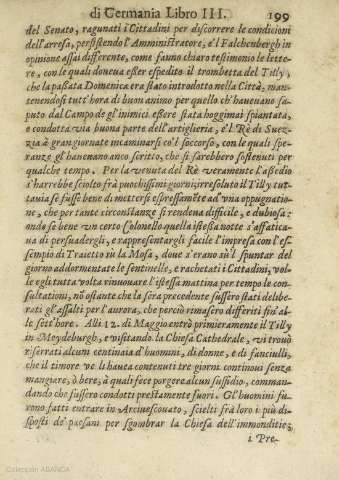 di Germania Libro III. 199
del Senato, ragunati i Cittadini per discorrere le condicioni
dell'arresa, persistendo l'Amministratore, e'l Falchenbergh in
opinione assai differente, come fanno chiaro testimonio le lette-
re, con le quali doueua esser espedito il trombetta del Tilly,
che la passata Domenica era stato introdotto nella Città, man-
tenendosi tutt'hora di buon animo per quello ch'haueuano sa-
puto dal Campo de gl'inimici essere stata hoggimai spiantata,
e condotta via buona parte dell'artiglieria, e'l Rè di Suez-
zia à gran giornate incaminarsi co'l soccorso, con le quali spe-
ranze gl'haueuano anco scritto, che si sarebbero sostenuti per
qualche tempo. Per la venuta del Rè veramente l'assedio
s'harrebbe sciolto frà puochissimi giorni; irresoluto il Tilly tut-
tauia se fusse bene di mettersi espressamẽte ad vna oppugnatio-
ne, che per tante circonstanze si rendeua difficile, e dubiosa:
onde se bene vn certo Colonello quella istessa notte s'affatica-
ua di persuadergli, e rappresentargli facile l'impresa con l'es-
sempio di Traietto sù la Mosa, doue s'erano sù'l spuntar del
giorno addormentate le sentinelle, e rachetati i Cittadini, vol-
le egli tutta volta rinouare l'istessa mattina per tempo le con-
sultationi, nõ ostante che la sera precedente fussero stati delibe-
rati gl'assalti per l'aurora, che perciò rimasero differiti sin'al-
le sett'hore. Alli 12. di Maggio entrò primieramente il Tilly
in Meydeburgh, e visitando la Chiesa Cathedrale, vi trouò
riserrati alcuni centinaia d'huomini, di donne, e di fanciulli,
che il timore ve li haueua contenuti tre giorni continoui senza
mangiare, ò bere, à quali fece porgere alcun sussidio, comman-
dando che fussero condotti prestamente fuori. Gl'huomini fu-
rono fatti entrare in Arciuescouato, scielti frà loro i più di-
sposti de' paesani per sgombrar la Chiesa dell'immonditie;
1 Pre-
Colección ABANCA